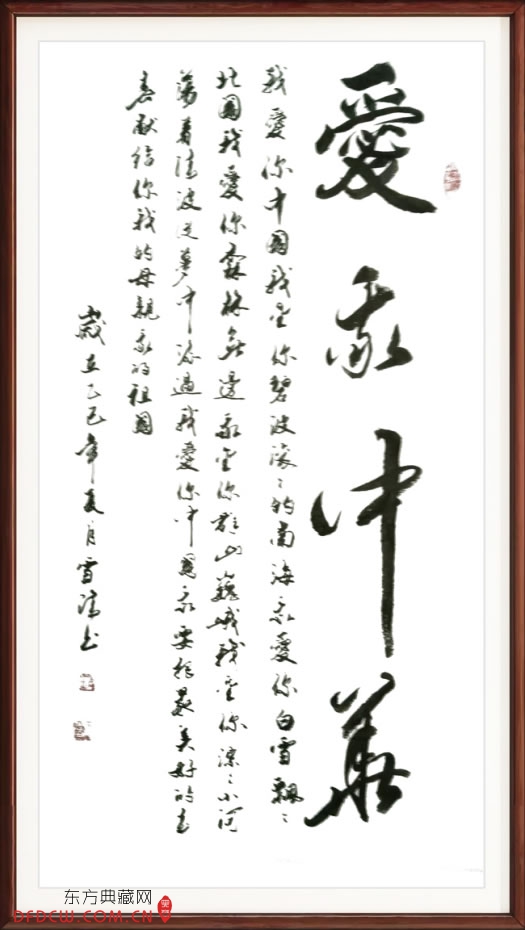 愛我中華
我愛你中國我愛你碧波滾々的南海我愛你白雪飄々
北國我愛你森林無邊我愛你群山巍峨我愛你淙々小河
蕩着清波從夢中流過我愛你中國我要把最美好的青
春献給你我的母親我的祖國
歲在乙巳年夏月雪书
东方典藏网
DFDCW.COM.CN